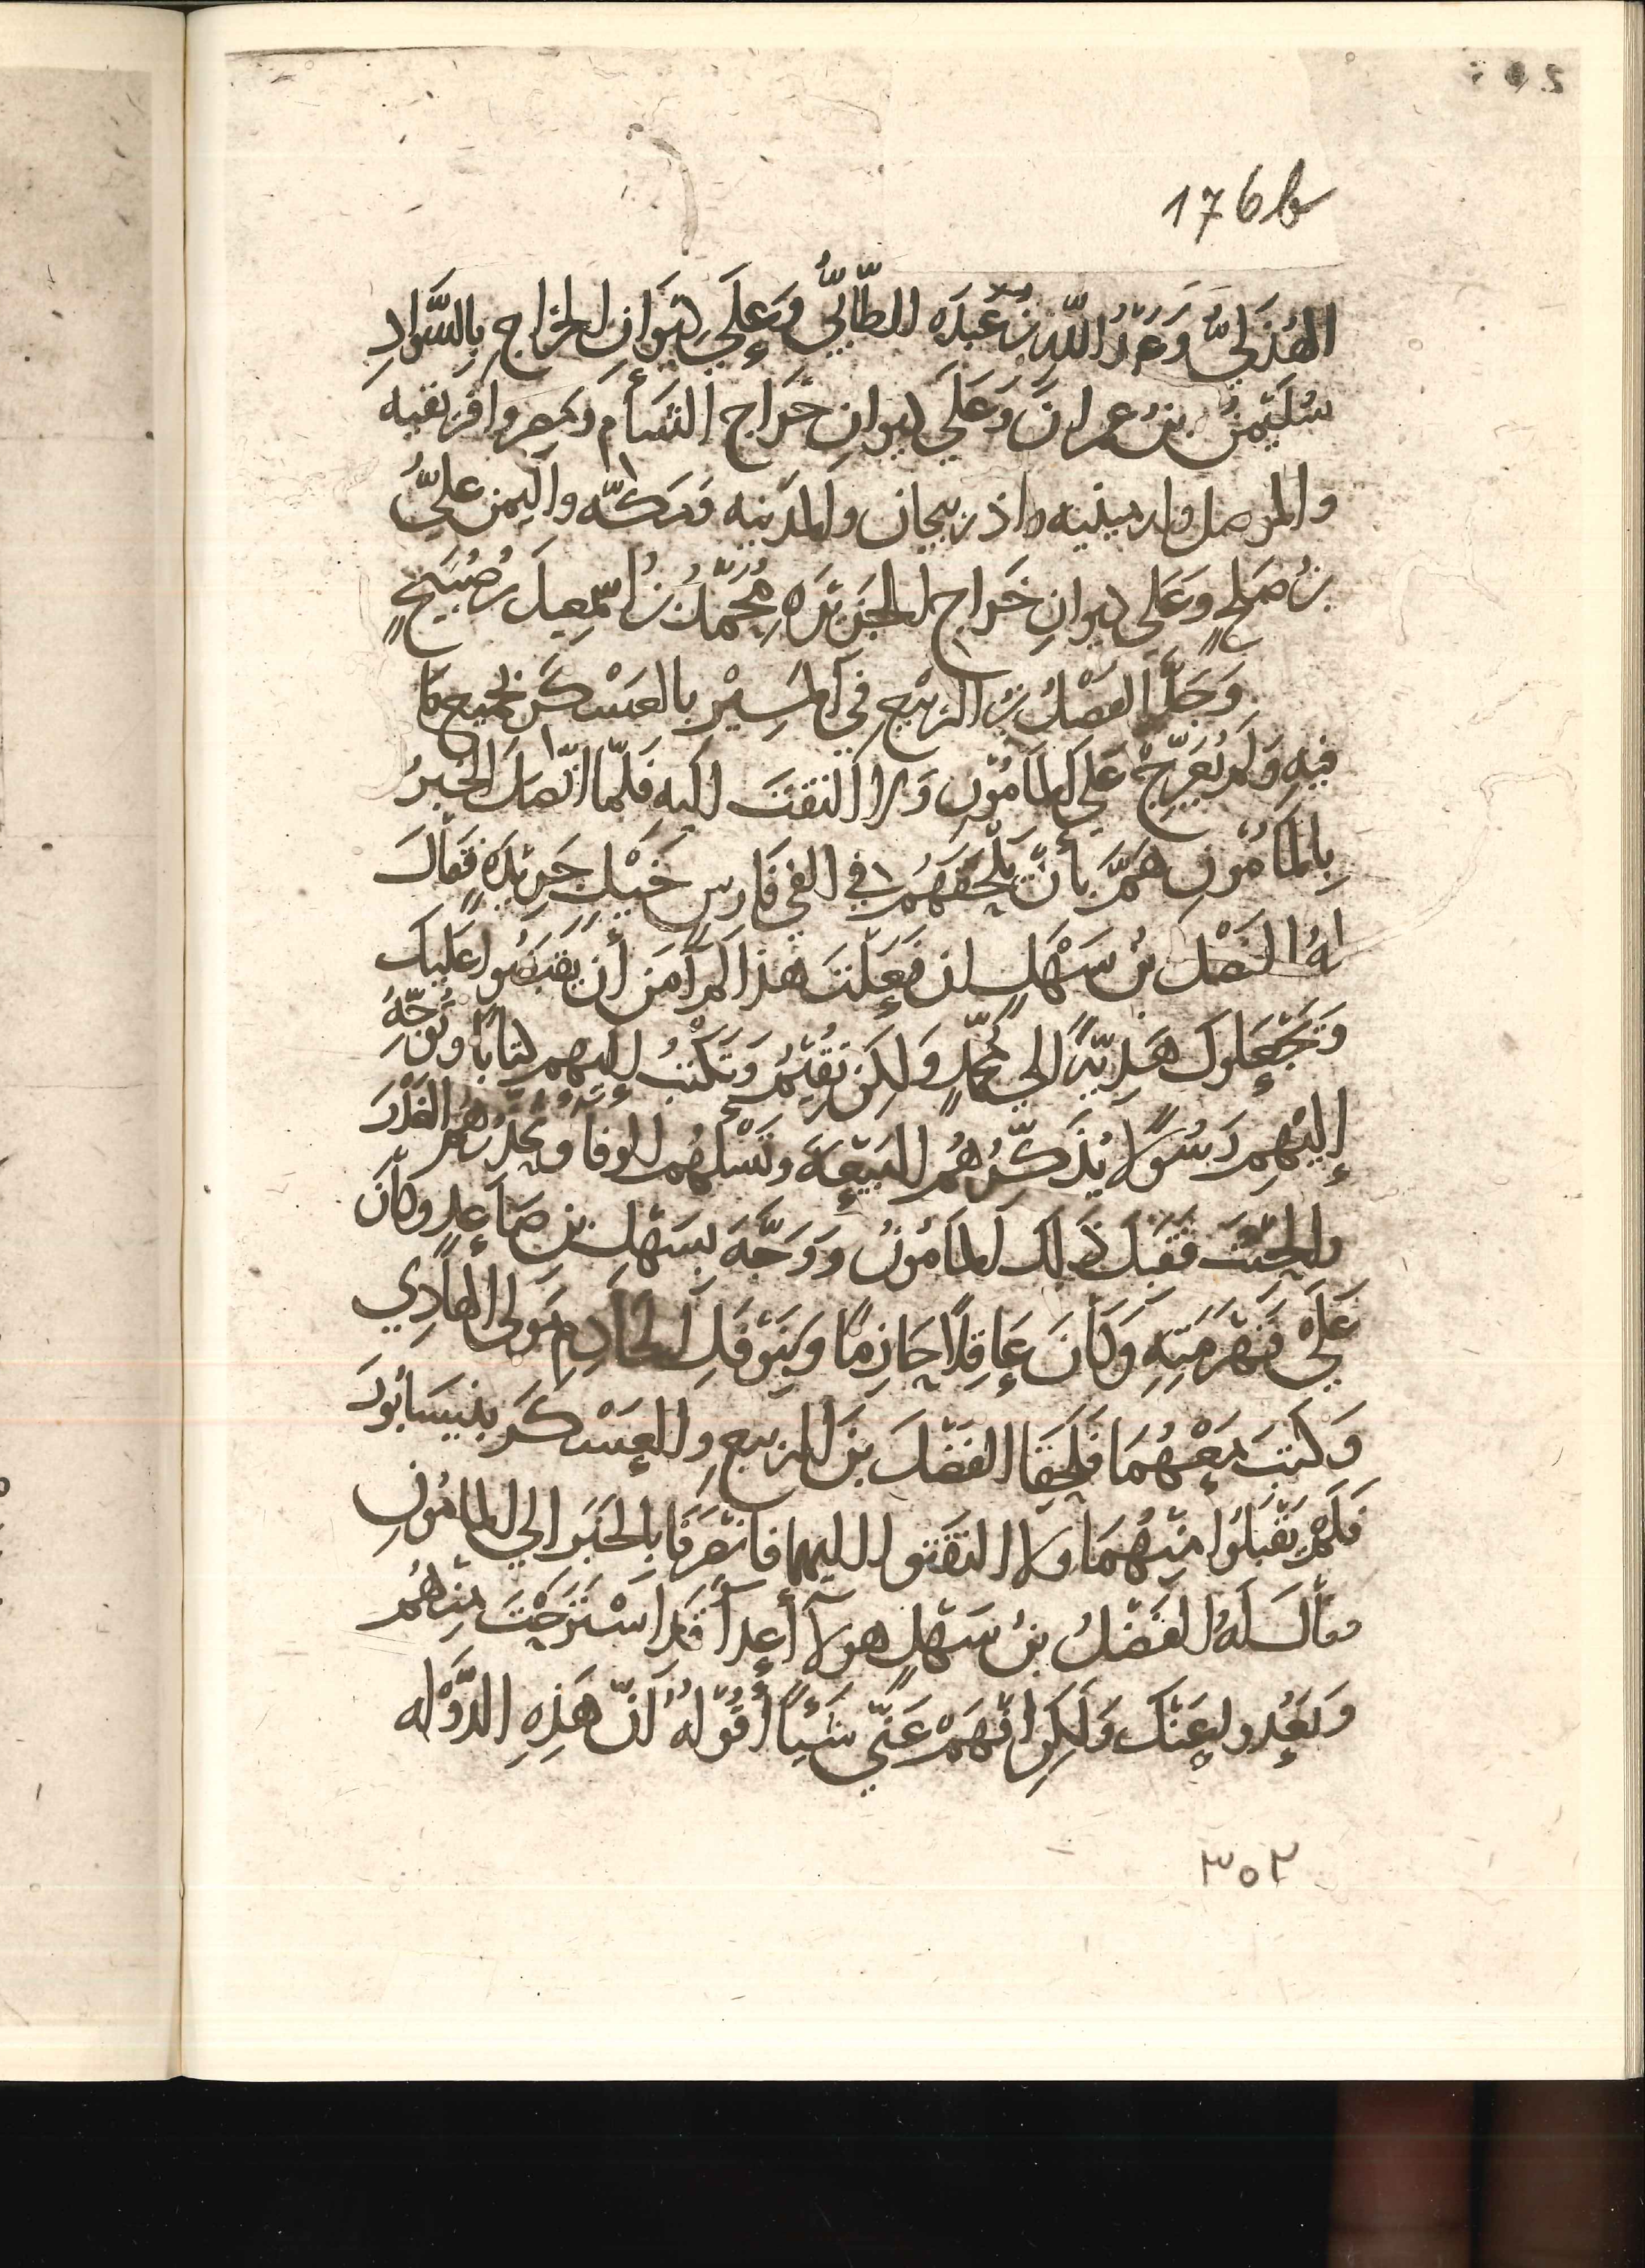 176b
الهُذَليُّ وَعَبدُ اللّهِ بنُ عَبدَه الطّائيُّ وَعلَي ديوَانِ الخراجِ بِالسَّوادِ
سُلَيمنُ بنُ عمرانَ وَعَلَي ديوانِ خَرَاجِ الشَأمِ ومصر وافريقيه
والموصل وارمينيه واذربيجان والمدينه ومكّه واليمن عليُّ
بنُ صَلحٍ وعَلَى ديوانِ خَراجِ الجزيرَهِ مُحمّدُ بنُ اسمعِيلَ بنِ صُبَيحٍ
وَجدَّ الفَضْلُ بنُ الربيعِ في المَسِيْرِ بالعَسْكَرِ بجميع مَا
فيهِ وَلم يُعَرِّجْ عَلي المَأمُونِ وَلا التَفَتَ اليهِ فَلمّا اتّصلَ الخبرُ
بِالمَأمُونِ همَّ بأنْ يَلْحَقَهُم في الفي فَارسٍ خَيْلٍ جَرِيْدَهٍ فقالَ
لهُ الفَضْلُ بنُ سَهْلٍ ان فَعَلتَ هذا لم آمَن أن يقبضُوا عَلَيكَ
وَتَجْعَلوكَ هَديّةً الي محمّدٍ وَلكِن نُقيمُ وَتَكتُبُ إليهم كتابًا وتُوجّهُ
إليْهِم رَسُولًا يُذَكِّرُهُم البَيْعَة وتَسْلُهُم الوفا ويُحذّرُهُم الغَدْرَ
والحِنْثَ فقبلَ ذَلك المَامُونُ وَوَجَّهَ بسَهْلِ بنِ صَاعِدٍ وكَانَ
عَلَي قَهْرَمَتِهِ وَكَانَ عَاقِلًا حَازمًا وبنَوْفَلِ الخَادِمِ مَولى الهادِي
وَكتَبَ مَعْهُمَا فلَحِقَا الفَضْلَ بنَ الرّبيعِ والعَسْكَرَ بنيسَابُورَ
فَلَم يَقْبلُوا مِنهُمَا ولا التَفَتوا اليهما فانصَرفَا بالخَبَر الي المامُونِ
فقالَ لَهُ الفَضْلُ بنُ سَهْلٍ هولآ أعدآ قدِ اسْتَرَحْتَ مِنهُم
وَبَعُدوا عنكَ وَلكِن افْهَمْ عَنّي شَيئًا أقُوْلُهُ أنّ هَذِهِ الدَّوْلَه
٣٥٢